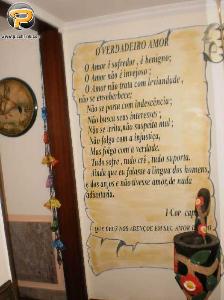 O VERDADEIRO AMOR
O Amor é sofredor, é benigno;
O Amor não é invejoso;
O Amor não trata com leviandade,
não se ensoberbece;
Não se porta com indescência;
Não busca seus interesses;
Não se irrita, não suspeita mal;
Não folga com a injustiça,
Mas folga com a verdade.
Tudo sofre, tudo crê, tudo suporta.
Ainda que eu falasse a língua dos homens,
e dos anjos e não tivesse amor, de nada
adiantaria.
I Cor. cap.
QUE DEUS NOS ABENÇOE EM SEU AMOR